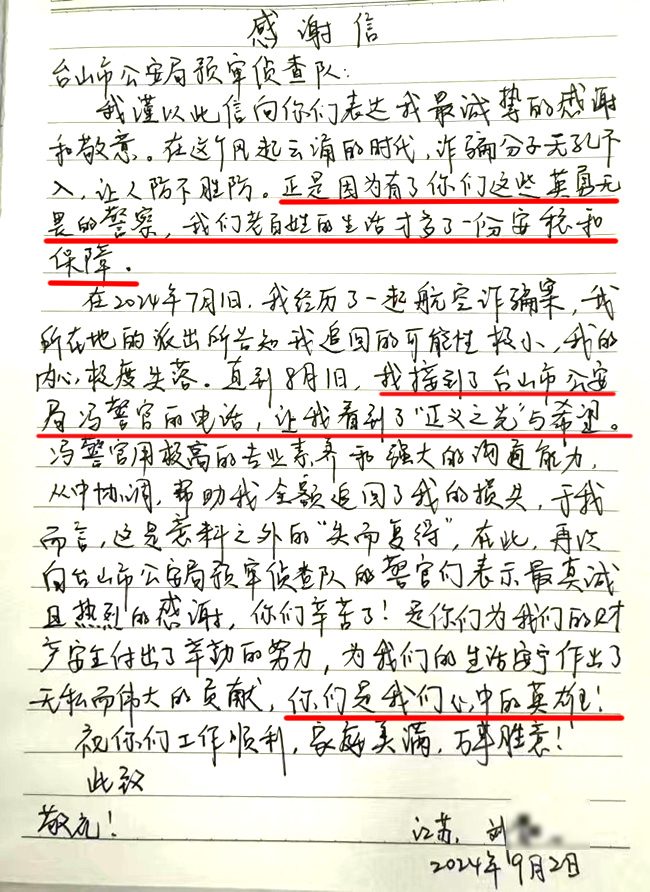 感谢信
台山市公安局预审侦查队:
我谨以此信向你们表达我最诚挚的感谢
和敬意。在这个风起云涌的时代,诈骗分子无孔不
入,让人防不胜防。正是因为有了你们这些英勇无
畏的警察,我们老百姓的生活才多了一份安稳和
保障。
在2024年7月1日,我经历了一起航空诈骗案,我
所在地的派出所告知我追回的可能性极小,我的
内心极度失落。直到8月1日,我接到了台山市公安
局冯警官的电话,让我看到了“正义之光”与希望。
冯警官用极高的专业素养和强大的沟通能力,
从中协调,帮助我全额追回了我的损失,于我
而言,这是意料之外的“失而复得”,在此,再次
向台山市公安局预审侦查队的警官们表示最真诚
且热烈的感谢,你们辛苦了!是你们为我们的财
产安全付出了辛勤的努力,为我们的生活安宁作出了
无私而伟大的贡献,你们是我们心中的英雄!
祝你们工作顺利,家庭美满,万事胜意!
此致
敬礼!
江苏,刘
2024年9月2日